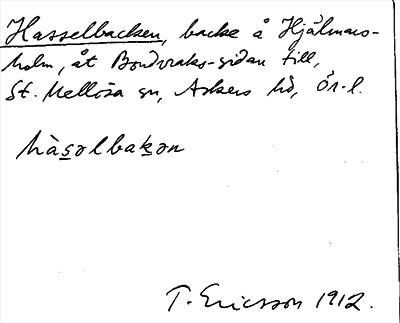 Hasselbacken, backe å Hjälmars-
holm, åt Bondvraks-sidan till,
St. Mellösa sn, Askers hd, Ör. l.
hàsəlbakən
T. Ericsson 1912.